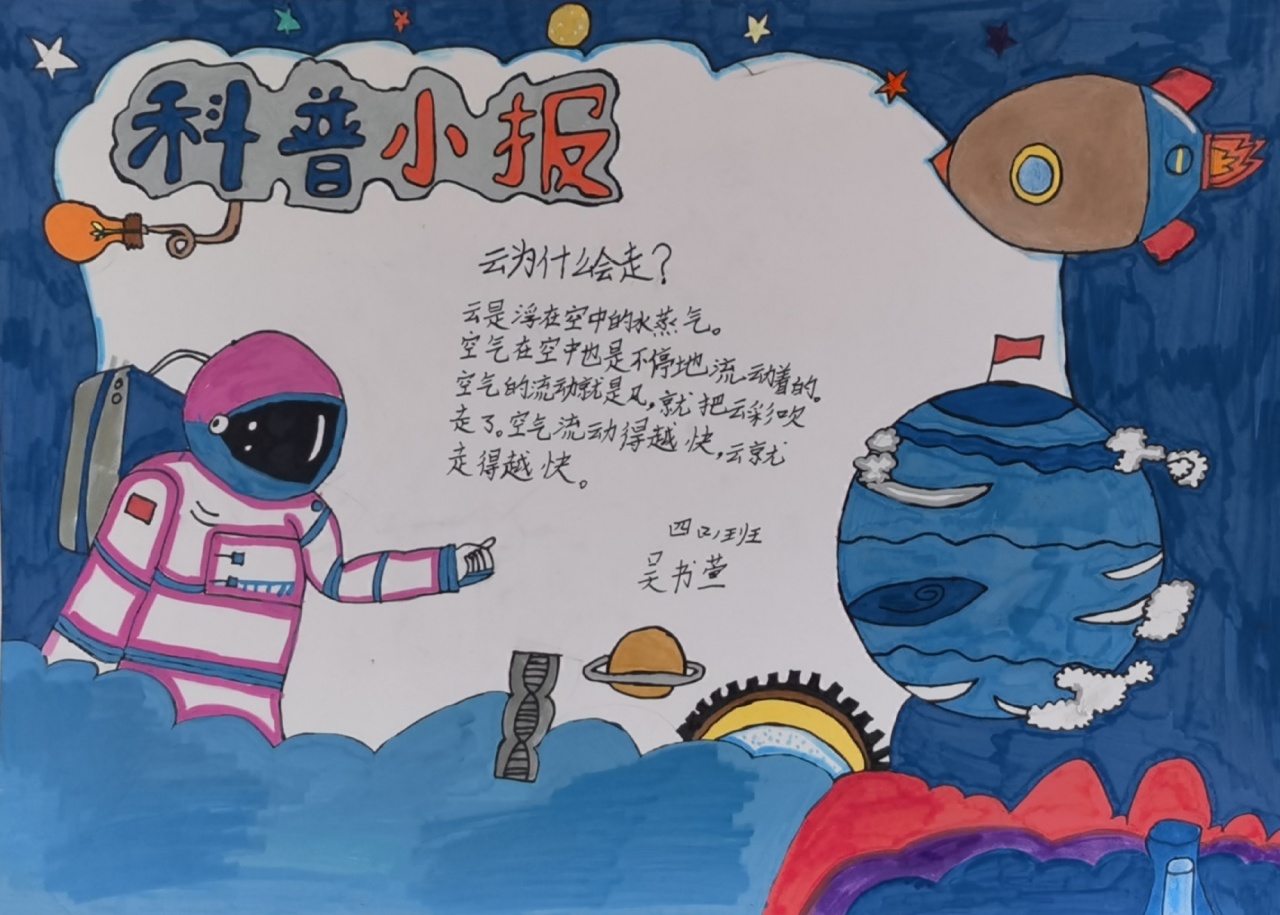 科普小报
云为什么会走？
云是浮在空中的水蒸气。
空气在空中也是不停地流动着的。
空气的流动就是风，就把云彩吹
走了。空气流动得越快，云就
走得越快。
四(2)班
吴书萱